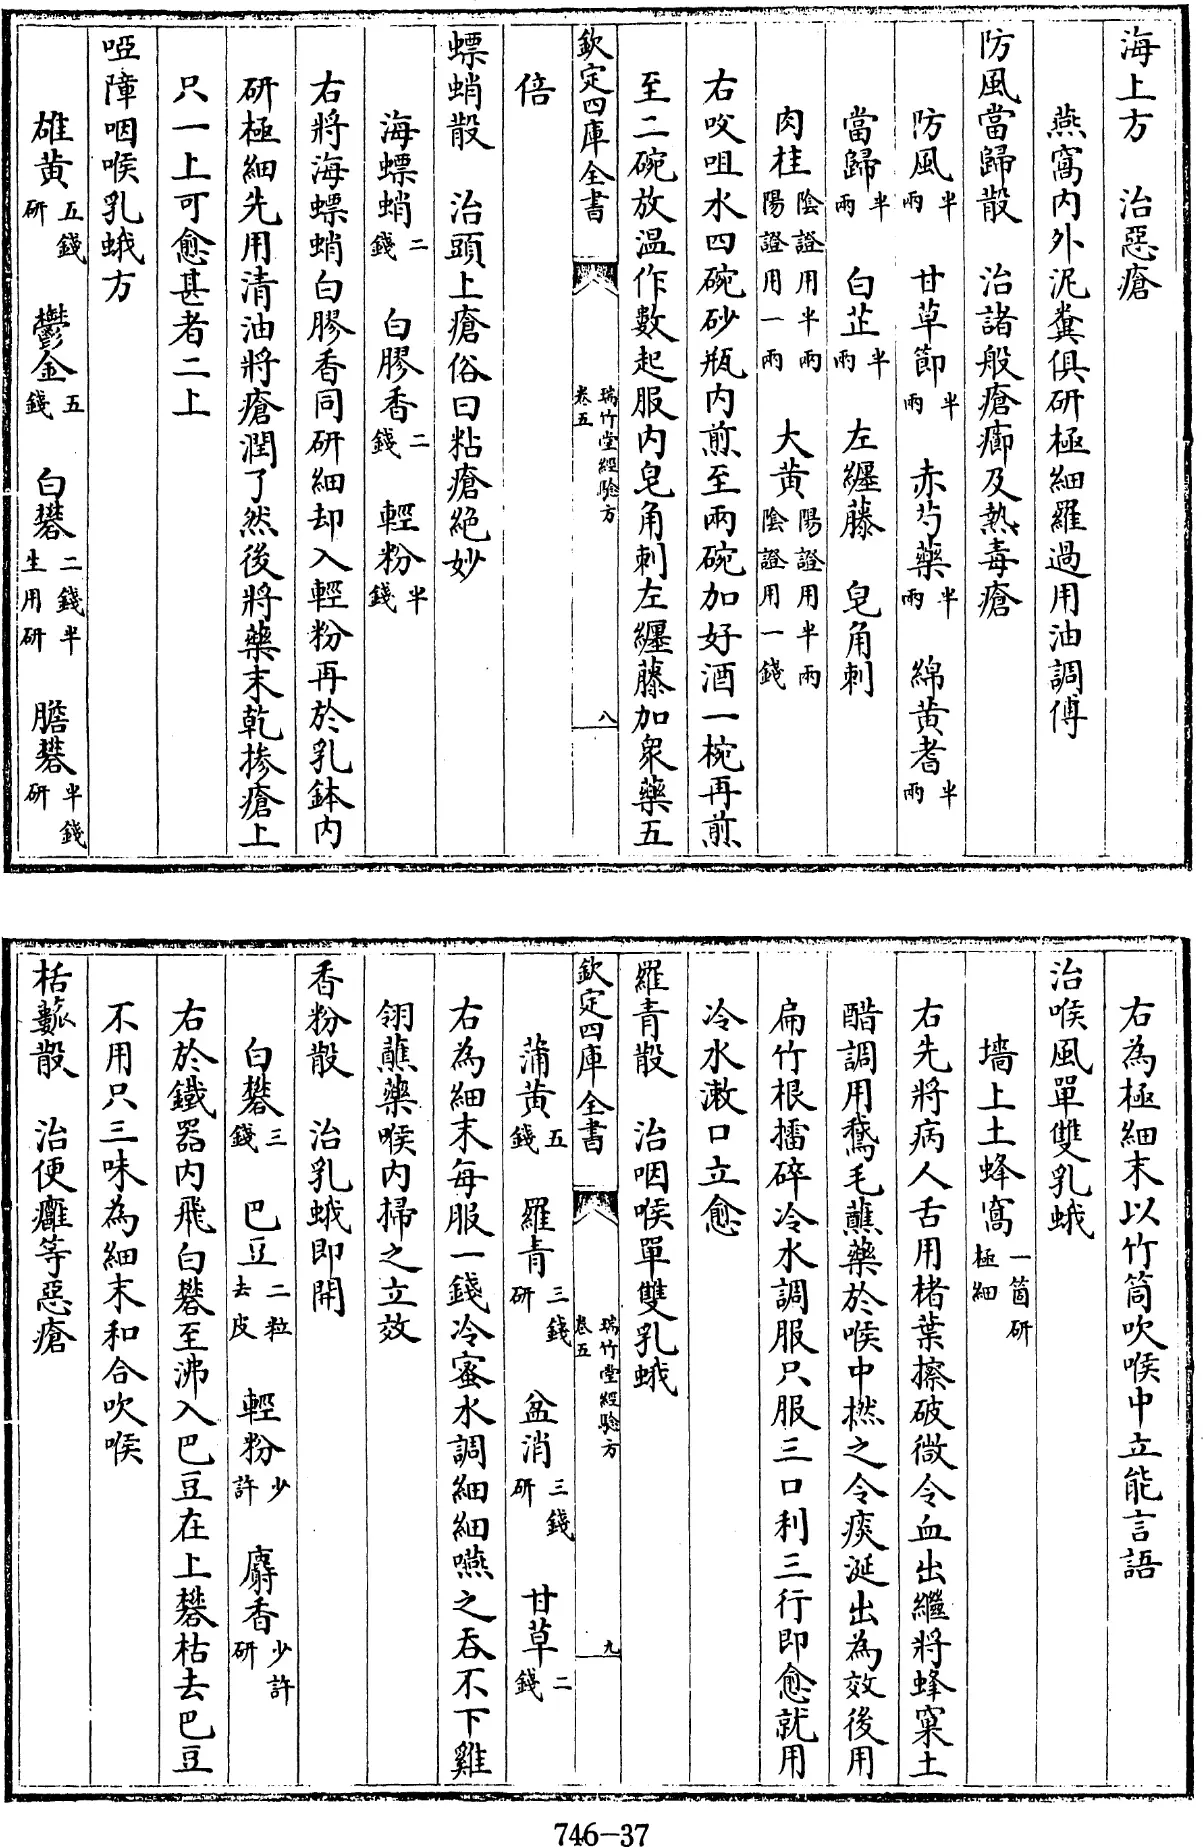 海上方　治惡瘡
燕窩内外泥糞俱研極細羅過用油調傅
防風當歸散　治諸般瘡癤及熱毒瘡
防風半兩　甘草節半兩　赤芍藥半兩　綿黄耆半兩
當歸半兩　白芷半兩　左纒藤　皂角刺
肉桂陰證用半兩陽證用一兩　大黄陽證用半兩陰證用一錢
右㕮咀水四碗砂瓶内煎至兩碗加好酒一椀再煎
至二碗放温作數起服内皂角刺左纒藤加衆藥五
欽定四庫全書　瑞竹堂經驗方卷五　八
倍
螵蛸散　治頭上瘡俗曰粘瘡絶妙
海螵蛸二錢　白膠香二錢　輕粉半錢
右將海螵蛸白膠香同研細却入輕粉再於乳鉢内
研極細先用清油將瘡潤了然後將藥末乾摻瘡上
只一上可愈甚者二上
啞障咽喉乳蛾方
雄黄五錢研　鬱金五錢　白礬二錢半生用研　膽礬半錢研
右為極細末以竹筒吹喉中立能言語
治喉風單雙乳蛾
墻上土蜂窩一箇研極細
右先將病人舌用楮葉擦破微令血出繼將蜂窠土
醋調用鵞毛蘸藥於喉中撚之令痰涎出為效後用
扁竹根擂碎冷水調服只服三口利三行即愈就用
冷水漱口立愈
羅青散　治咽喉單雙乳蛾
欽定四庫全書　瑞竹堂經驗方卷五　九
蒲黄五錢　羅青三錢研　盆消三錢研　甘草二錢
右為細末每服一錢冷蜜水調細細嚥之吞不下雞
翎蘸藥喉内掃之立效
香粉散　治乳蛾即開
白礬三錢　巴豆二粒去皮　輕粉少許　麝香少許研
右於鐵器内飛白礬至沸入巴豆在上礬枯去巴豆
不用只三味為細末和合吹喉
栝蔞散　治便癰等惡瘡
746-37